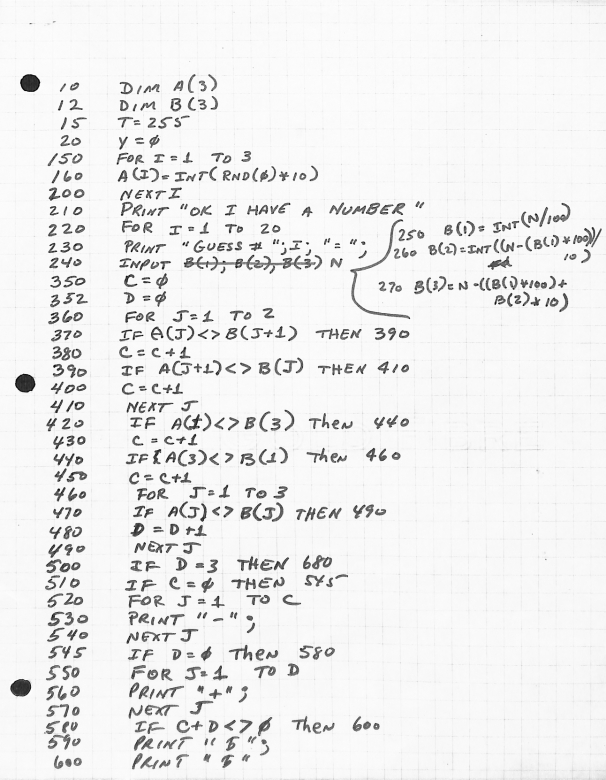 10 DIM A(3)
12 DIM B(3)
15 T=255
20 Y=ø
150 FOR I=1 TO 3
160 A(I)=INT(RND(ø)*10)
200 NEXT I
210 PRINT "OK I HAVE A NUMBER"
220 FOR I=1 TO 20
230 PRINT "GUESS #";I;"=";
240 INPUT B(1); B(2), B(3) N
250 B(1)=INT(N/100)
260 B(2)=INT((N-(B(1)*100))/
10)
270 B(3)=N-((B(1)*100)+
B(2)*10)
350 C=ø
352 D=ø
360 FOR J=1 TO 2
370 IF A(J)<>B(J+1) THEN 390
380 C=C+1
390 IF A(J+1)<>B(J) THEN 410
400 C=C+1
410 NEXT J
420 IF A(1)<>B(3) Then 440
430 C=C+1
440 IF A(3)<>B(1) Then 460
450 C=C+1
460 FOR J=1 TO 3
470 IF A(J)<>B(J) THEN 490
480 D=D+1
490 NEXT J
500 IF D=3 THEN 680
510 IF C=ø THEN 545
520 FOR J=1 TO C
530 PRINT "-";
540 NEXT J
545 IF D=ø Then 580
550 FOR J=1 TO D
560 PRINT "+";
570 NEXT J
580 IF C+D<>ø Then 600
590 PRINT " ";
600 PRINT " "